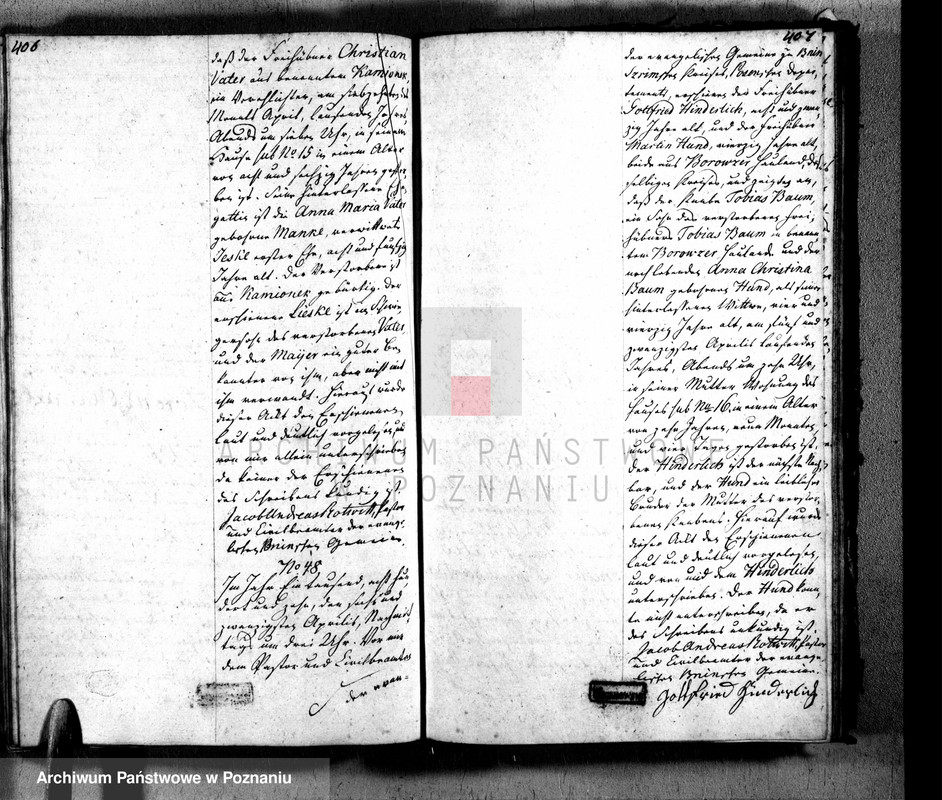 406
daß der Freihübner Christian
Vater aus benanntem Kamionek,
ein Verehlichter, am siebzehnten des
Monats April, laufenden Jahres
Abends um sieben Uhr, in seinem
Hause sub No 15 in einem Alter
von acht und sechzig Jahren gestor-
ben ist. Seine hinterlassene Ehe-
gattin ist die Anna Maria Vater
gebohrne Manke, verwittwete
Jeske erster Ehe, acht und fünfzig
Jahre alt. Der Verstorbene ist
aus Kamionek gebürtig. Der
erschienene Lieske ist ein Schwie-
gersohn des verstorbenen Vater,
und der Maijer ein guter Be-
kannter von ihm, aber nicht mit
ihm verwandt. Hierauf wurde
dieser Act den Erschienenen
laut und deutlich vorgelesen und
von mir allein unterschrieben
da keiner der Erschienenen
des Schreibens kundig ist.
Jacob Andreas Kottwitz, Pastor
und Civilbeamter der evange-
lischen Bninschen Gemeine.
No 48.
Im Jahr Ein tausend, acht hun-
dert und zehn, den sechs und
zwanzigsten Aprilis, Nachmit-
tags um drei Uhr. Vor mir
dem Pastor und Civilbeamten
der evan-
407
der evangelischen Gemeine zu Bnin
Szrimschen Kreises, Posenschen Depar-
tements, erschienen der Freihübner
Gottfried Hinderlich, acht und zwan-
zig Jahre alt, und der Freihübner
Martin Hund, vierzig Jahre alt,
beide aus Borowzer Hauland, des-
selbigen Kreises, und zeigten an,
daß der Knabe Tobias Baum,
ein Sohn des verstorbenen Frei-
hübners Tobias Baum in benann-
tem Borowzer Haulande und der
noch lebenden Anna Christina
Baum gebohrnen Hund, als seiner
hinterlassenen Wittwe, vier und
vierzig Jahre alt, am fünf und
zwanzigsten Aprilis laufenden
Jahres, Abends um zehn Uhr,
in seiner Mutter Wohnung des
Hauses sub No 16, in einem Alter
von zehn Jahren, neun Monaten
und vier Tagen gestorben ist.
Der Hinderlich ist der nächste Nach-
bar, und der Hund ein leiblicher
Bruder der Mutter des verstor-
benen Knabens. Hierauf wurde
dieser Act den Erschienenen
laut und deutlich vorgelesen,
und von mir und dem Hinderlich
unterschrieben. Der Hund konn-
te nicht unterschreiben, da er
des Schreibens unkundig ist.
Jacob Andreas Kottwitz, Pastor
und Civilbeamter der evange-
lischen Bninschen Gemeine.
Gottfried Hinderlich
ARCHIWUM PAŃSTWOWE
W POZNANIU
Archiwum Państwowe w Poznaniu